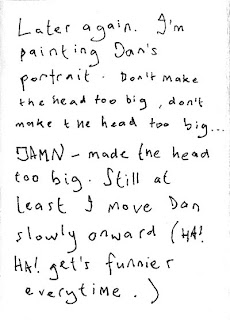 Later again. I'm
painting Dan's
portrait. Don't make
the head too big, don't
make the head too big...
DAMN - made the head
too big. Still at
least I move Dan
slowly onward (HA!
HA! get's funnier
everytime.)